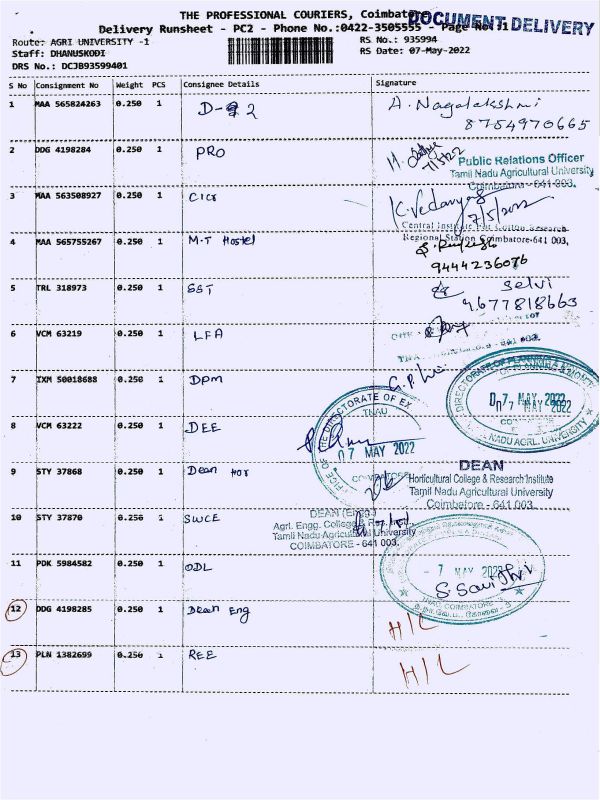 THE PROFESSIONAL COURIERS, Coimbatore
DOCUMENT DELIVERY
Delivery Runsheet - PC2 - Phone No.:0422-3505555 - Page No.:1
Route: AGRI UNIVERSITY -1
RS No.: 935994
Staff: DHANUSKODI
RS Date: 07-May-2022
DRS No.: DCJB93599401
S No Consignment No Weight PCS Consignee Details Signature
1 MAA 565824263 0.250 1 D-2 A. Nagalakshmi
8754970665
2 DDG 4198284 0.250 1 PRO
7/5/22
Public Relations Officer
Tamil Nadu Agricultural University
Coimbatore - 641 003.
3 MAA 563508927 0.250 1 CICR K. Vedanyag
7/5/2022
Central Institute For Cotton Research
Regional Station Coimbatore-641 003,
4 MAA 565755267 0.250 1 M.T Hostel
9444236076
5 TRL 318973 0.250 1 SST Selvi
9677818663
6 VCM 63219 0.250 1 LFA
7 IXM 50018688 0.250 1 DPM
DIRECTORATE OF PLANNING & MONIT
07 MAY 2022
07 MAY 2022
NADU AGRL. UNIVERSITY
8 VCM 63222 0.250 1 DEE
OFFICE OF THE DIRECTORATE OF EX
TNAU
07 MAY 2022
COIMBATORE
9 STY 37868 0.250 1 Dean Hor
DEAN
Horticultural College & Research Institute
Tamil Nadu Agricultural University
Coimbatore - 641 003.
10 STY 37870 0.250 1 SWCE
DEAN (Engg.)
Agrl. Engg. College & Res.
Tamil Nadu Agricultural University
COIMBATORE - 641 003.
11 PDK 5984582 0.250 1 ODL
- 7 MAY 2022
S. Savithri
TNAU, COIMBATORE
12 DDG 4198285 0.250 1 Dean Eng H/L
13 PLN 1382699 0.250 1 REE H/L